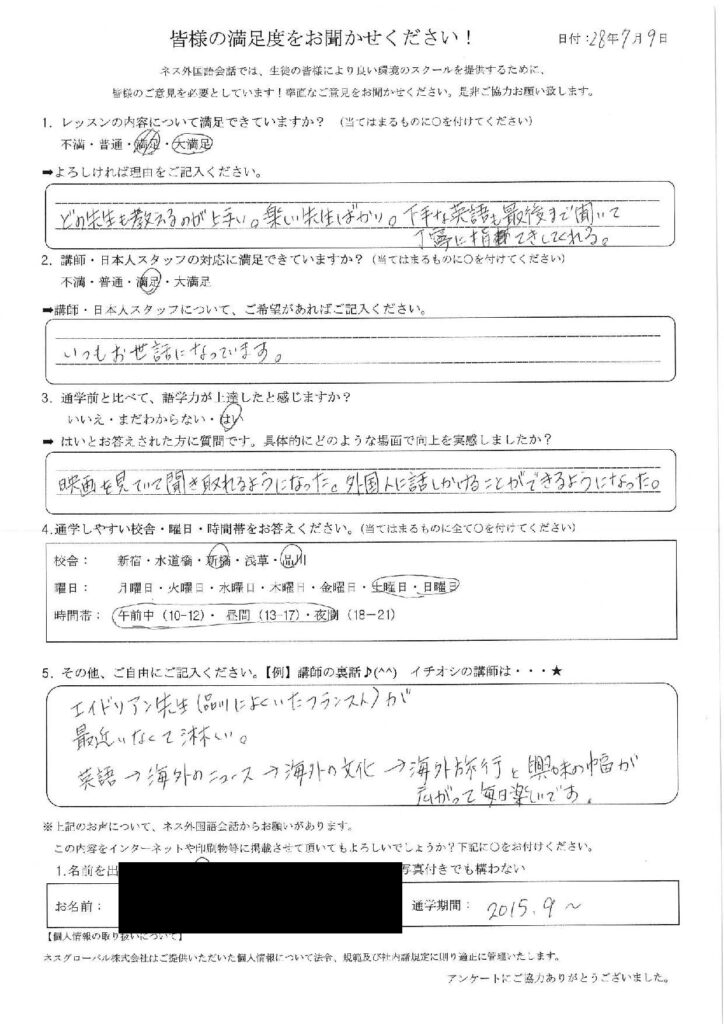 皆様の満足度をお聞かせください！
日付：28年7月9日
ネス外国語会話では、生徒の皆様により良い環境のスクールを提供するために、
皆様のご意見を必要としています！率直なご意見をお聞かせください。是非ご協力お願い致します。
1．レッスンの内容について満足できていますか？（当てはまるものに〇を付けてください）
不満・普通・満足・大満足
➡よろしければ理由をご記入ください。
どの先生も教えるのが上手い。楽しい先生ばかり。下手な英語も最後まで聞いて
丁寧に指てきしてくれる。
2．講師・日本人スタッフの対応に満足できていますか？（当てはまるものに〇を付けてください）
不満・普通・満足・大満足
➡講師・日本人スタッフについて、ご希望があればご記入ください。
いつもお世話になっています。
3．通学前と比べて、語学力が上達したと感じますか？
いいえ・まだわからない・はい
➡ はいとお答えされた方に質問です。具体的にどのような場面で向上を実感しましたか？
映画を見ていて聞き取れるようになった。外国人に話しかけることができるようになった。
4.通学しやすい校舎・曜日・時間帯をお答えください。（当てはまるものに全て〇を付けてください）
校舎： 新宿・水道橋・新橋・浅草・品川
曜日： 月曜日・火曜日・水曜日・木曜日・金曜日・土曜日・日曜日
時間帯： 午前中（10-12）・ 昼間（13-17）・夜間（18－21）
5．その他、ご自由にご記入ください。【例】講師の裏話♪(^^)　イチオシの講師は・・・★
エイドリアン先生（品川によくいたフランス人）が
最近いなくて淋しい。
英語→海外のニュース→海外の文化→海外旅行と興味の幅が
広がって毎日楽しいです。
※上記のお声について、ネス外国語会話からお願いがあります。
この内容をインターネットや印刷物等に掲載させて頂いてもよろしいでしょうか？下記に〇をお付けください。
1.名前を出 写真付きでも構わない
お名前： 通学期間： 2015．9～
【個人情報の取り扱いについて】
ネスグローバル株式会社はご提供いただいた個人情報について法令、規範及び社内諸規定に則り適正に管理いたします。
アンケートにご協力ありがとうございました。